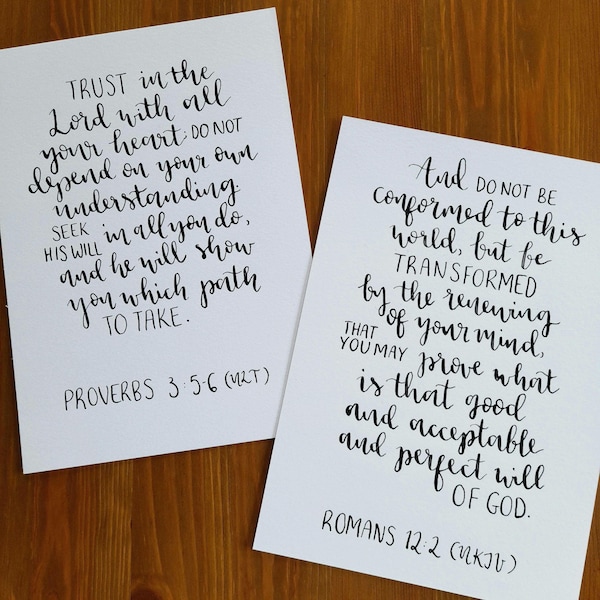 TRUST in the
Lord with all
your heart; DO NOT
depend on your own
understanding
SEEK
HIS WILL in all you do,
and he will show
you which path
TO TAKE.
PROVERBS 3:5-6 (NLT)
And DO NOT BE
conformed to this
world, but be
TRANSFORMED
by the renewing
of your mind,
THAT
YOU MAY prove what
is that good
and acceptable
and perfect will
OF GOD.
ROMANS 12:2 (NKJV)